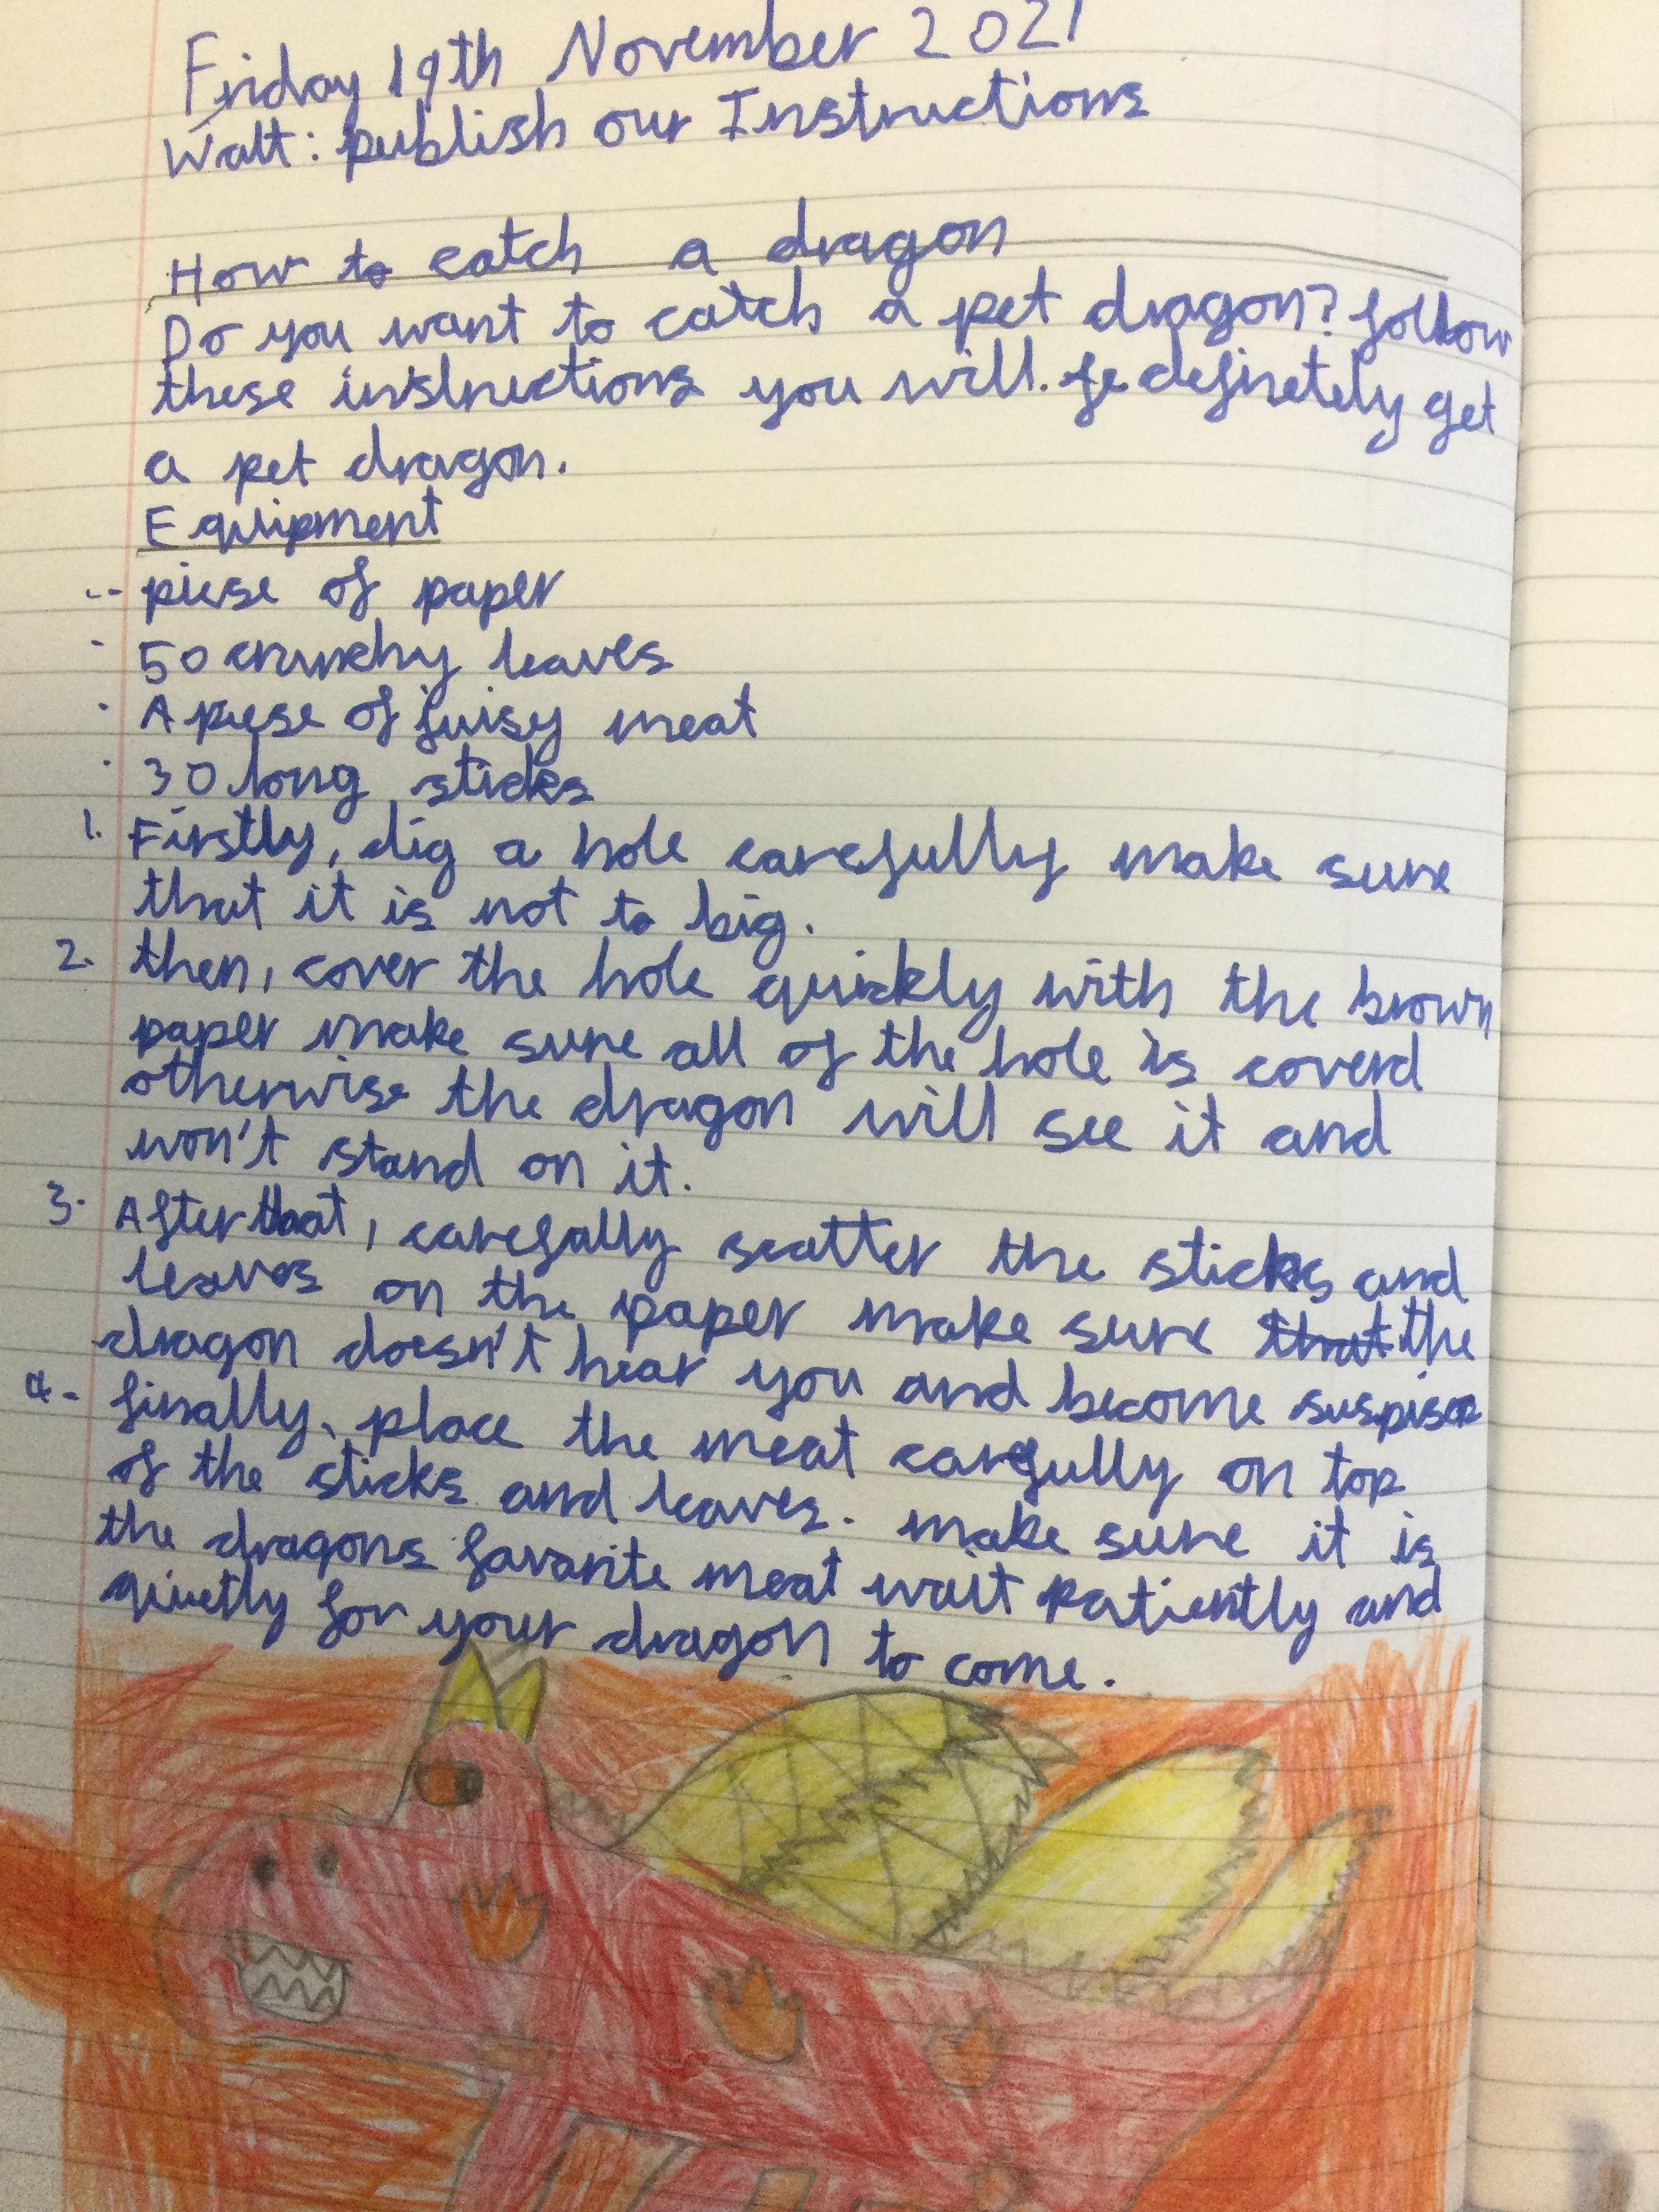 Friday 19th November 2021
Walt: publish our Instructions
How to catch a dragon
Do you want to catch a pet dragon? follow
these instructions you will. definetely get
a pet dragon.
Equipment
- piese of paper
· 50 crunchy leaves
· A piese of juisy meat
· 30 long sticks
1. Firstly, dig a hole carefully make sure
that it is not to big.
2. then, cover the hole quickly with the brown
paper make sure all of the hole is coverd
otherwise the dragon will see it and
won't stand on it.
3. After that, carefally scatter the sticks and
leaves on the paper make sure that the
dragon doesn't hear you and become
4. finally, place the meat carefully on top
of the sticks and leaves. make sure it is
the dragons favarite meat wait patiently and
quietly for your dragon to come.